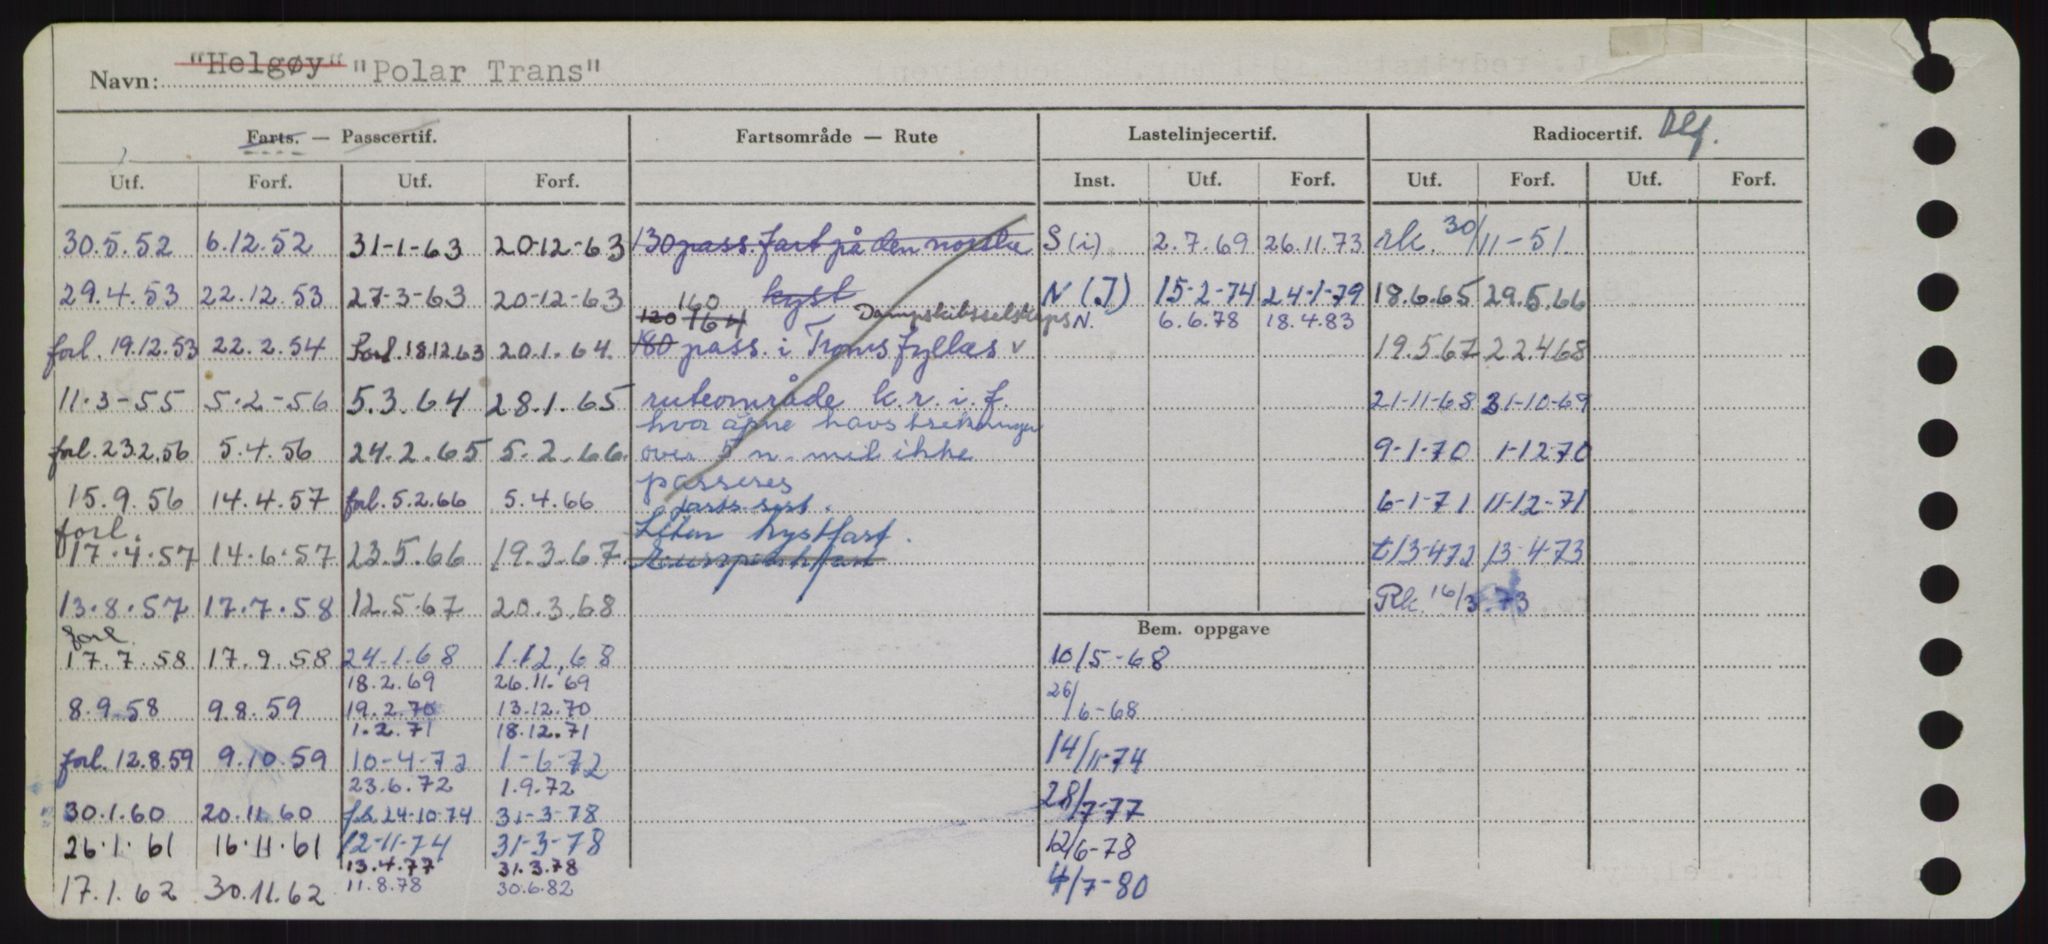 Navn: "Helgøy" "Polar Trans"
Farts. — Passcertif. Fartsområde — Rute Lastelinjecertif. Radiocertif.
Utf. Forf. Utf. Forf. Inst. Utf. Forf. Utf. Forf. Utf. Forf.
30.5.52 6.12.52 31-1-63 20-12-63 130 pass. fart på den norske S (i) 2.7.69 26.11.73 rk. 30/11-51
29.4.53 22.12.53 27-3-63 20-12-63 kyst N (I) 15-2-74 24-1-79 18.6.65 29.5.66
160
120 164 Dampskibsselskaps N. 6.6.78 18.4.83
forl. 19.12.53 22.2.54 forl. 18.12.63 20.1.64 180 pass. i Troms fylkes 19.5.67 22.4.68
11.3-55 5.2-56 5.3.64 28.1.65 ruteområde k.r.i.f. 21-11-68 31-10-69
hvor åpne havstrekninger
forl. 23.2.56 5.4.56 24.2.65 5.2.66 over 5 n. mil ikke 9-1-70 1-12-70
passeres
15.9.56 14.4.57 forl. 5.2.66 5.4.66 farts sert. 6-1-71 11-12-71
forl. Liten kystfart.
17.4.57 14.6.57 23.5.66 19.3.67 Europeisk fart t 13-4-72 13-4-73
13.8.57 17.7.58 12.5.67 20.3.68 Rk. 16/3.73
Bem. oppgave
forl.
17.7.58 17.9.58 24.1.68 1.12.68 10/5-68
18.2.69 26.11.69
8.9.58 9.8.59 19.2.70 13.12.70 26/6-68
1.2.71 18.12.71
forl. 12.8.59 9.10.59 10-4-72 1-6-72 14/11-74
23.6.72 1.9.72
30.1.60 20.11.60 24-10-74 31-3-78 28/7-77
26.1.61 16.11.61 12-11-74 31-3-78 12/6-78
13.4.77 31.3.78
17.1.62 30.11.62 11.8.78 30.6.82 4/7-80